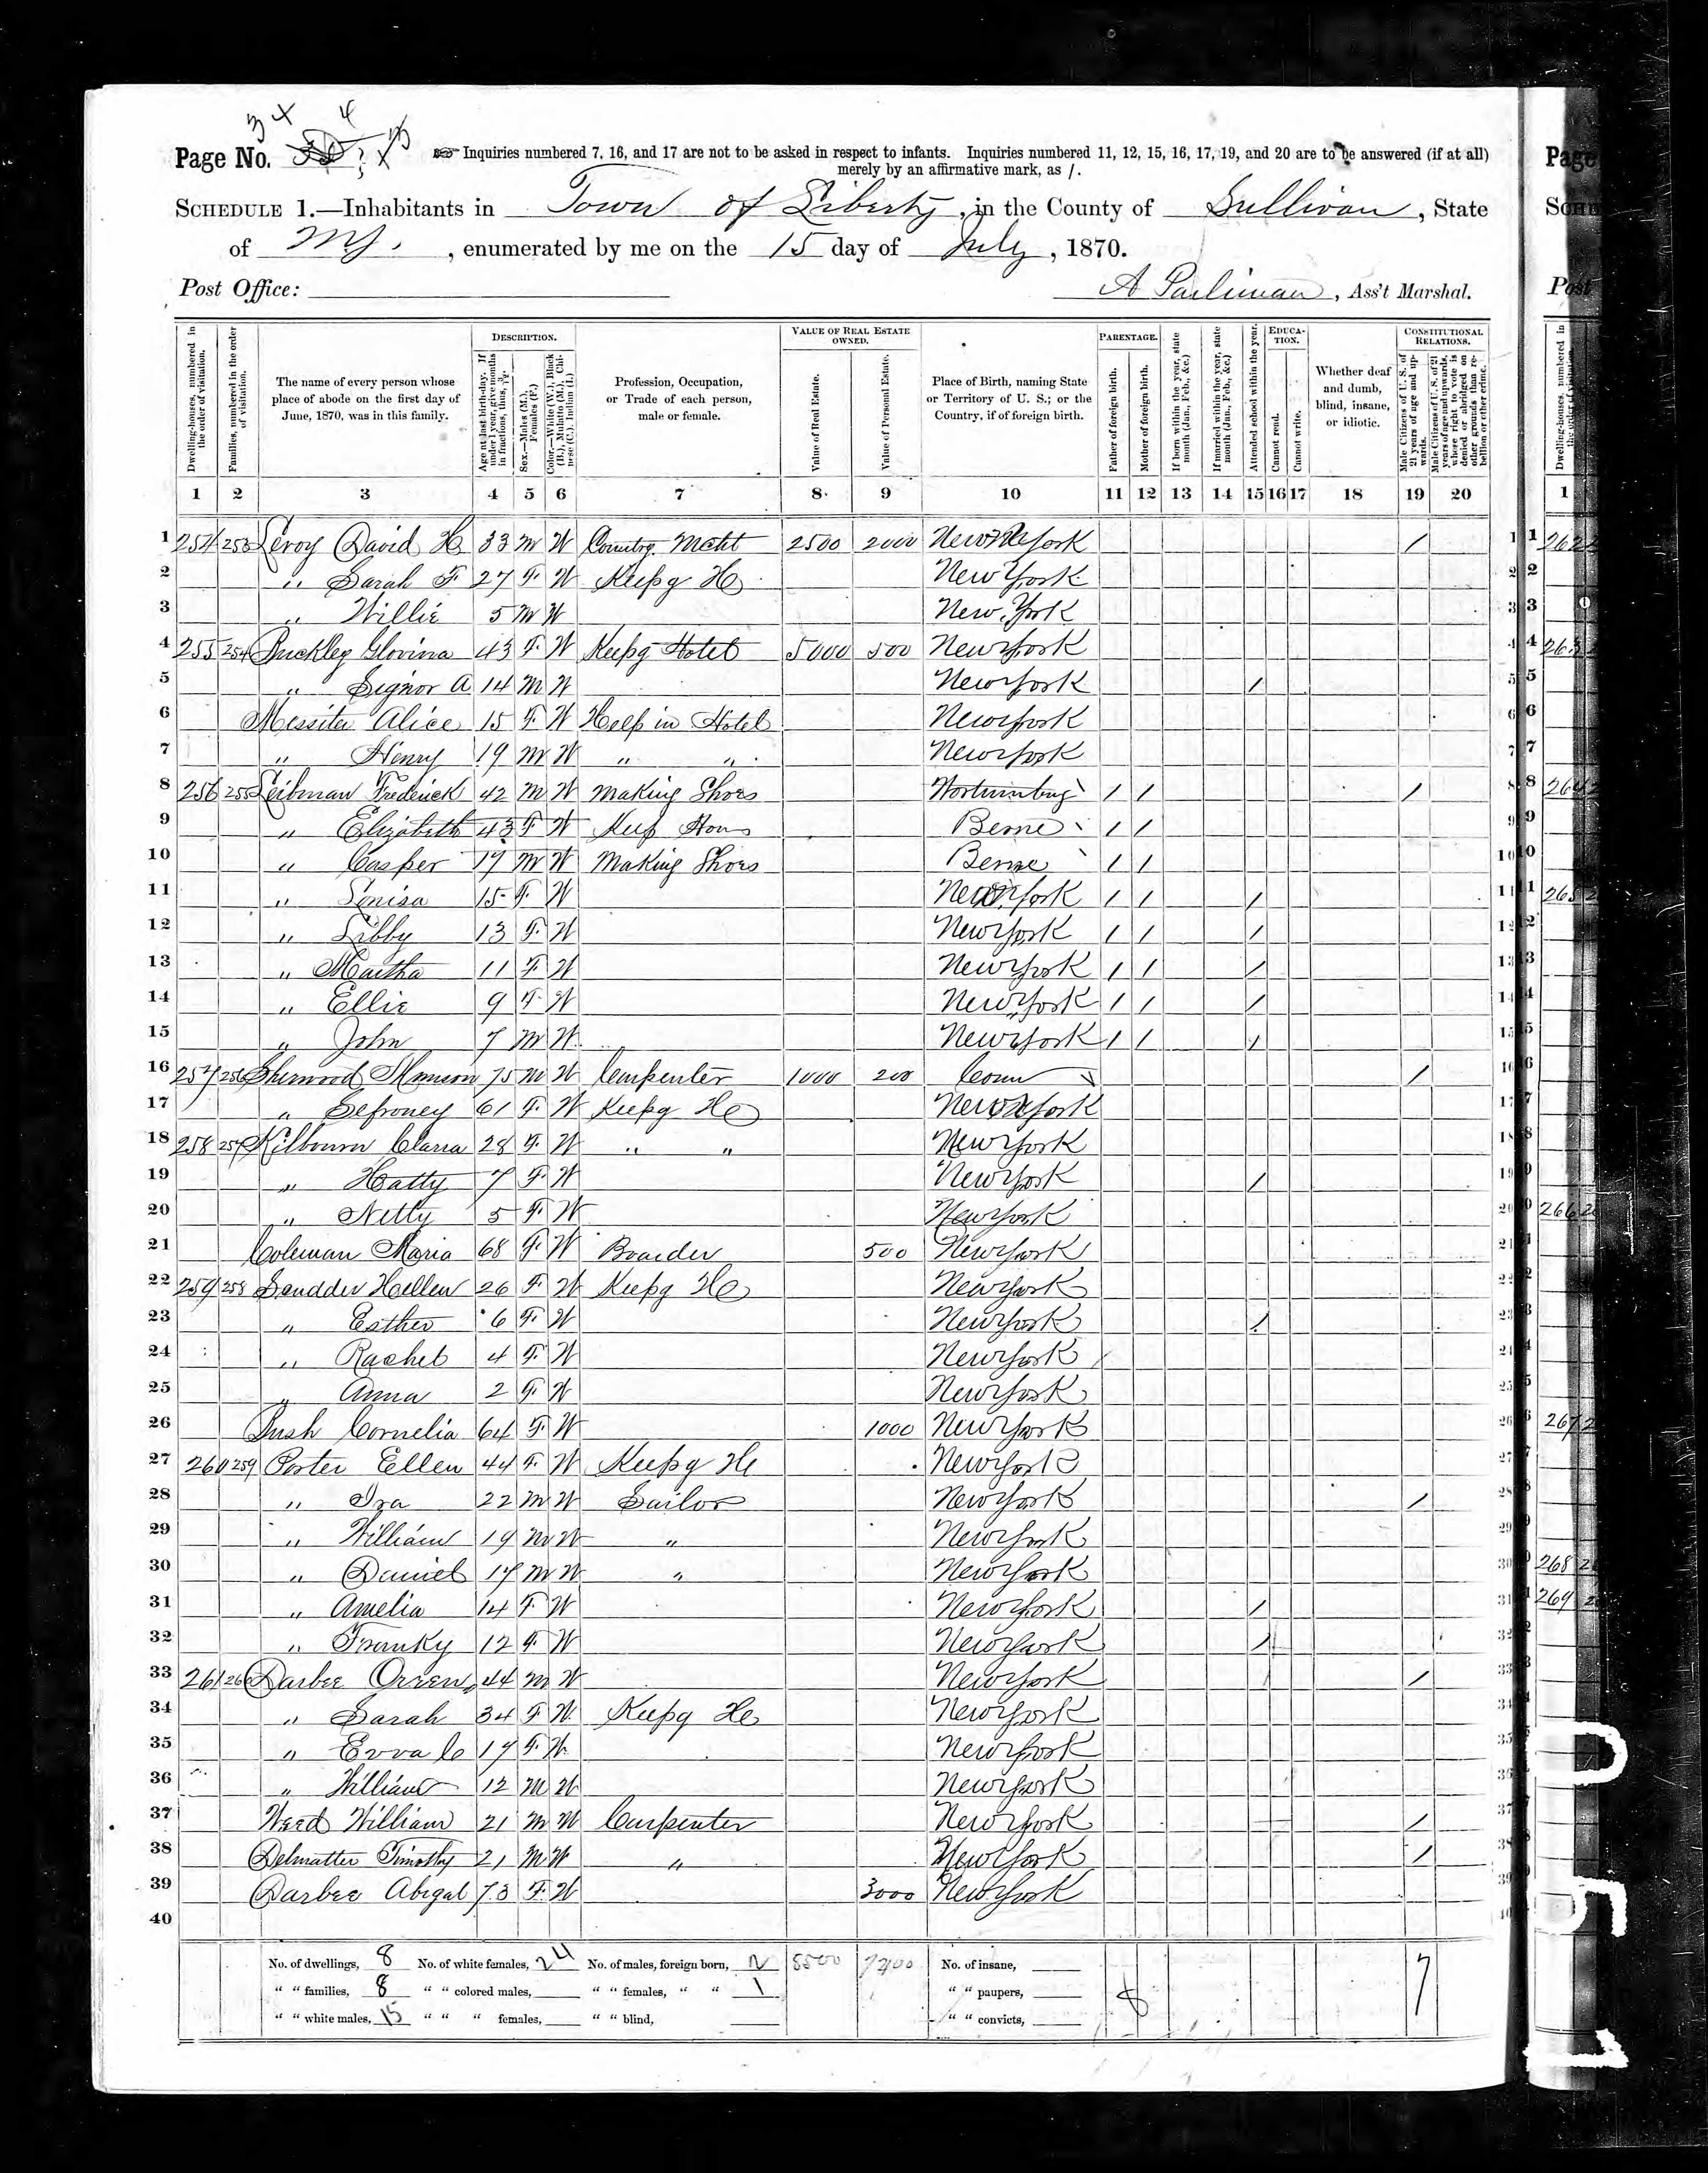 34 4
Page No. 33
Inquiries numbered 7, 16, and 17 are not to be asked in respect to infants. Inquiries numbered 11, 12, 15, 16, 17, 19, and 20 are to be answered (if at all)
merely by an affirmative mark, as /.
SCHEDULE 1.—Inhabitants in Town of Liberty, in the County of Sullivan, State
of NY., enumerated by me on the 15 day of July, 1870.
Post Office:
A Parliman, Ass't Marshal.
Dwelling-houses, numbered in the order of visitation.
Families, numbered in the order of visitation.
The name of every person whose place of abode on the first day of June, 1870, was in this family.
DESCRIPTION.
Age at last birth-day. If under 1 year, give months in fractions, thus, 3/12.
Sex.—Males (M.), Females (F.)
Color.—White (W.), Black (B.), Mulatto (M.), Chinese (C.), Indian (I.)
Profession, Occupation, or Trade of each person, male or female.
VALUE OF REAL ESTATE OWNED.
Value of Real Estate.
Value of Personal Estate.
Place of Birth, naming State or Territory of U. S.; or the Country, if of foreign birth.
PARENTAGE.
Father of foreign birth.
Mother of foreign birth.
If born within the year, state month (Jan., Feb., &c.)
If married within the year, state month (Jan., Feb., &c.)
Attended school within the year.
EDUCATION.
Cannot read.
Cannot write.
Whether deaf and dumb, blind, insane, or idiotic.
CONSTITUTIONAL RELATIONS.
Male Citizens of U. S. of 21 years of age and upwards.
Male Citizens of U. S. of 21 years of age and upwards, whose right to vote is denied or abridged on other grounds than rebellion or other crime.
1 2 3 4 5 6 7 8 9 10 11 12 13 14 15 16 17 18 19 20
1 254 253 Leroy David H 33 M W Country Mcht 2500 2000 New York / 1
2 " Sarah F. 27 F. W Keepg Ho New York 2
3 " Willie 5 M W New York 3
4 255 254 Buckley Glovina 43 F. W Keepg Hotel 5000 500 New York 4
5 " Signor A 14 M W New York / 5
6 Messiter Alice 15 F. W Help in Hotel New York 6
7 " Henry 19 M W " " New York 7
8 256 255 Leibman Frederick 42 M W Making Shoes Wortumburg / / / 8
9 " Elizabeth 43 F W Keep Hous Berne / / 9
10 " Casper 17 M W Making Shoes Berne / / 10
11 " Lenisa 15 F. W New York / / / 11
12 " Libby 13 F. W New York / / / 12
13 " Martha 11 F. W New York / / / 13
14 " Ellie 9 F. W New York / / / 14
15 " John 7 M W New York / / / 15
16 257 256 Sherwood Monson 75 M W Carpenter 1000 200 Conn / 16
17 " Sefroney 61 F. W Keepg Ho New York 17
18 258 257 Kilbourn Clarra 28 F. W " " New York 18
19 " Hatty 7 F. W New York / 19
20 " Netty 5 F. W New York 20
21 Coleman Maria 68 F. W Boarder 500 New York 21
22 259 258 Scudder Hellen 26 F. W Keepg Ho New York 22
23 " Esther 6 F. W New York / 23
24 " Rachel 4 F. W New York 24
25 " Anna 2 F. W New York 25
26 Bush Cornelia 64 F. W 1000 New York 26
27 260 259 Porter Ellen 44 F. W Keepg Ho New York 27
28 " Ira 22 M W Sailor New York / 28
29 " William 19 M W " New York 29
30 " Daniel 17 M W " New York 30
31 " Amelia 14 F. W New York / 31
32 " Franky 12 F. W New York / 32
33 261 260 Darbee Orren 44 M W New York / 33
34 " Sarah 34 F W. Keepg Ho New York 34
35 " Evva C 17 F. W. New York 35
36 " William 12 M W New York 36
37 Weed William 21 M W Carpenter New York / 37
38 Delmatter Timothy 21 M W " New York / 38
39 Darbee Abigal 73 F. W 3000 New York 39
40
No. of dwellings, 8 No. of white females, 24 No. of males, foreign born, 2 8500 7200 No. of insane,
" " families, 8 " " colored males, " " females, " " 1 " " paupers, 8 7
" " white males, 15 " " " females, " " blind, " " convicts,